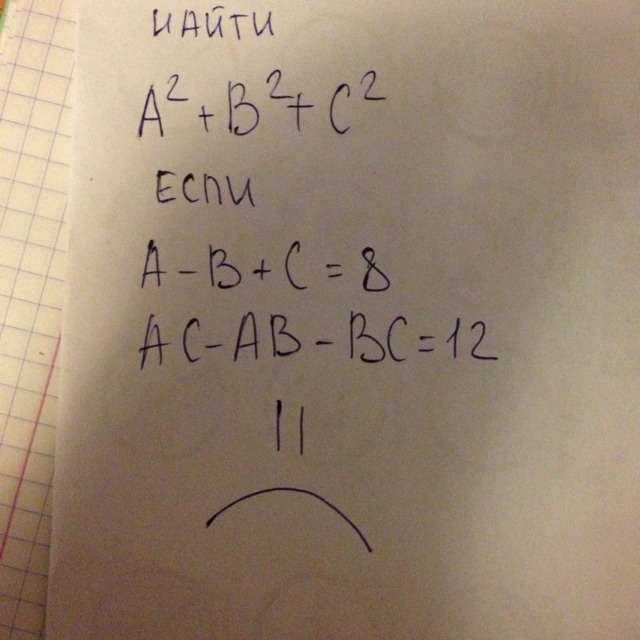 НАЙТИ
A²+B²+C²
ЕСЛИ
A-B+C=8
AC-AB-BC=12